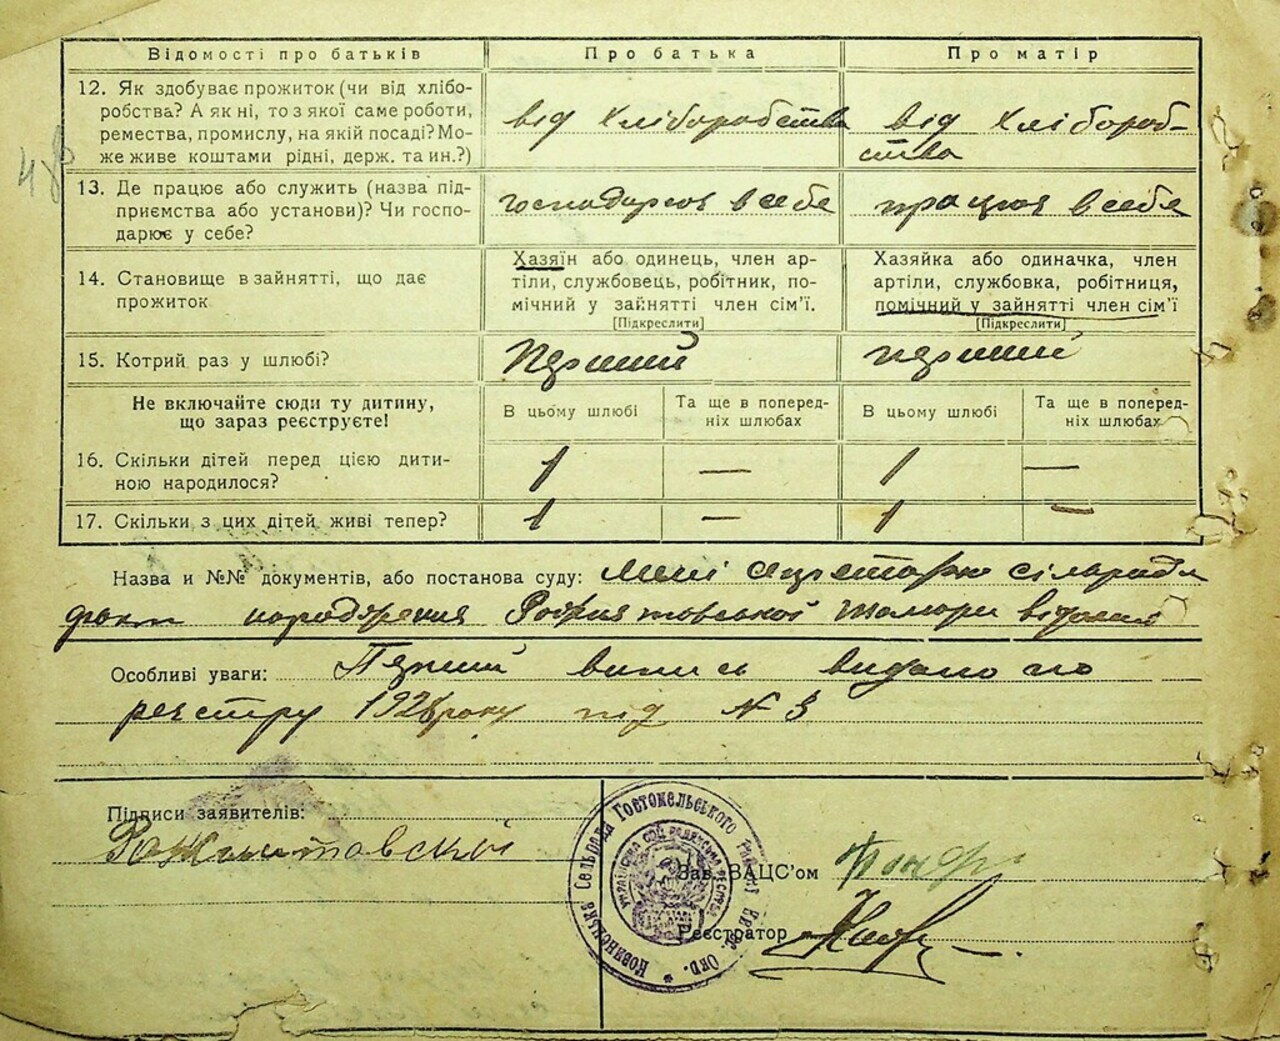 Відомості про батьків
Про батька
Про матір
12. Як здобуває прожиток (чи від хлібо-
робства? А як ні, то з якої саме роботи,
ремества, промислу, на якій посаді? Мо-
же живе коштами рідні, держ. та ин.?)
від хліборобства
від хлібороб-
ства
13. Де працює або служить (назва під-
приємства або установи)? Чи госпо-
дарює у себе?
господарює в себе
працює в себе
14. Становище в зайнятті, що дає
прожиток
Хазяїн або одинець, член ар-
тіли, службовець, робітник, по-
мічний у зайнятті член сім'ї.
[Підкреслити]
Хазяйка або одиначка, член
артіли, службовка, робітниця,
помічний у зайнятті член сім'ї
[Підкреслити]
15. Котрий раз у шлюбі?
перший
перший
Не включайте сюди ту дитину,
що зараз реєструєте!
В цьому шлюбі
Та ще в поперед-
ніх шлюбах
В цьому шлюбі
Та ще в поперед-
ніх шлюбах
16. Скільки дітей перед цією дити-
ною народилося?
1 — 1 —
17. Скільки з цих дітей живі тепер?
1 — 1 —
Назва и №№ документів, або постанова суду: Мені секретарю сільради
факт народження Тамари відомо
Особливі уваги: Перший випись видано по
реєстру 1928 року під № 3
Підписи заявителів:
Зав. ВАЦС'ом
Реєстратор
Сельрада Гостомельського
Окр.